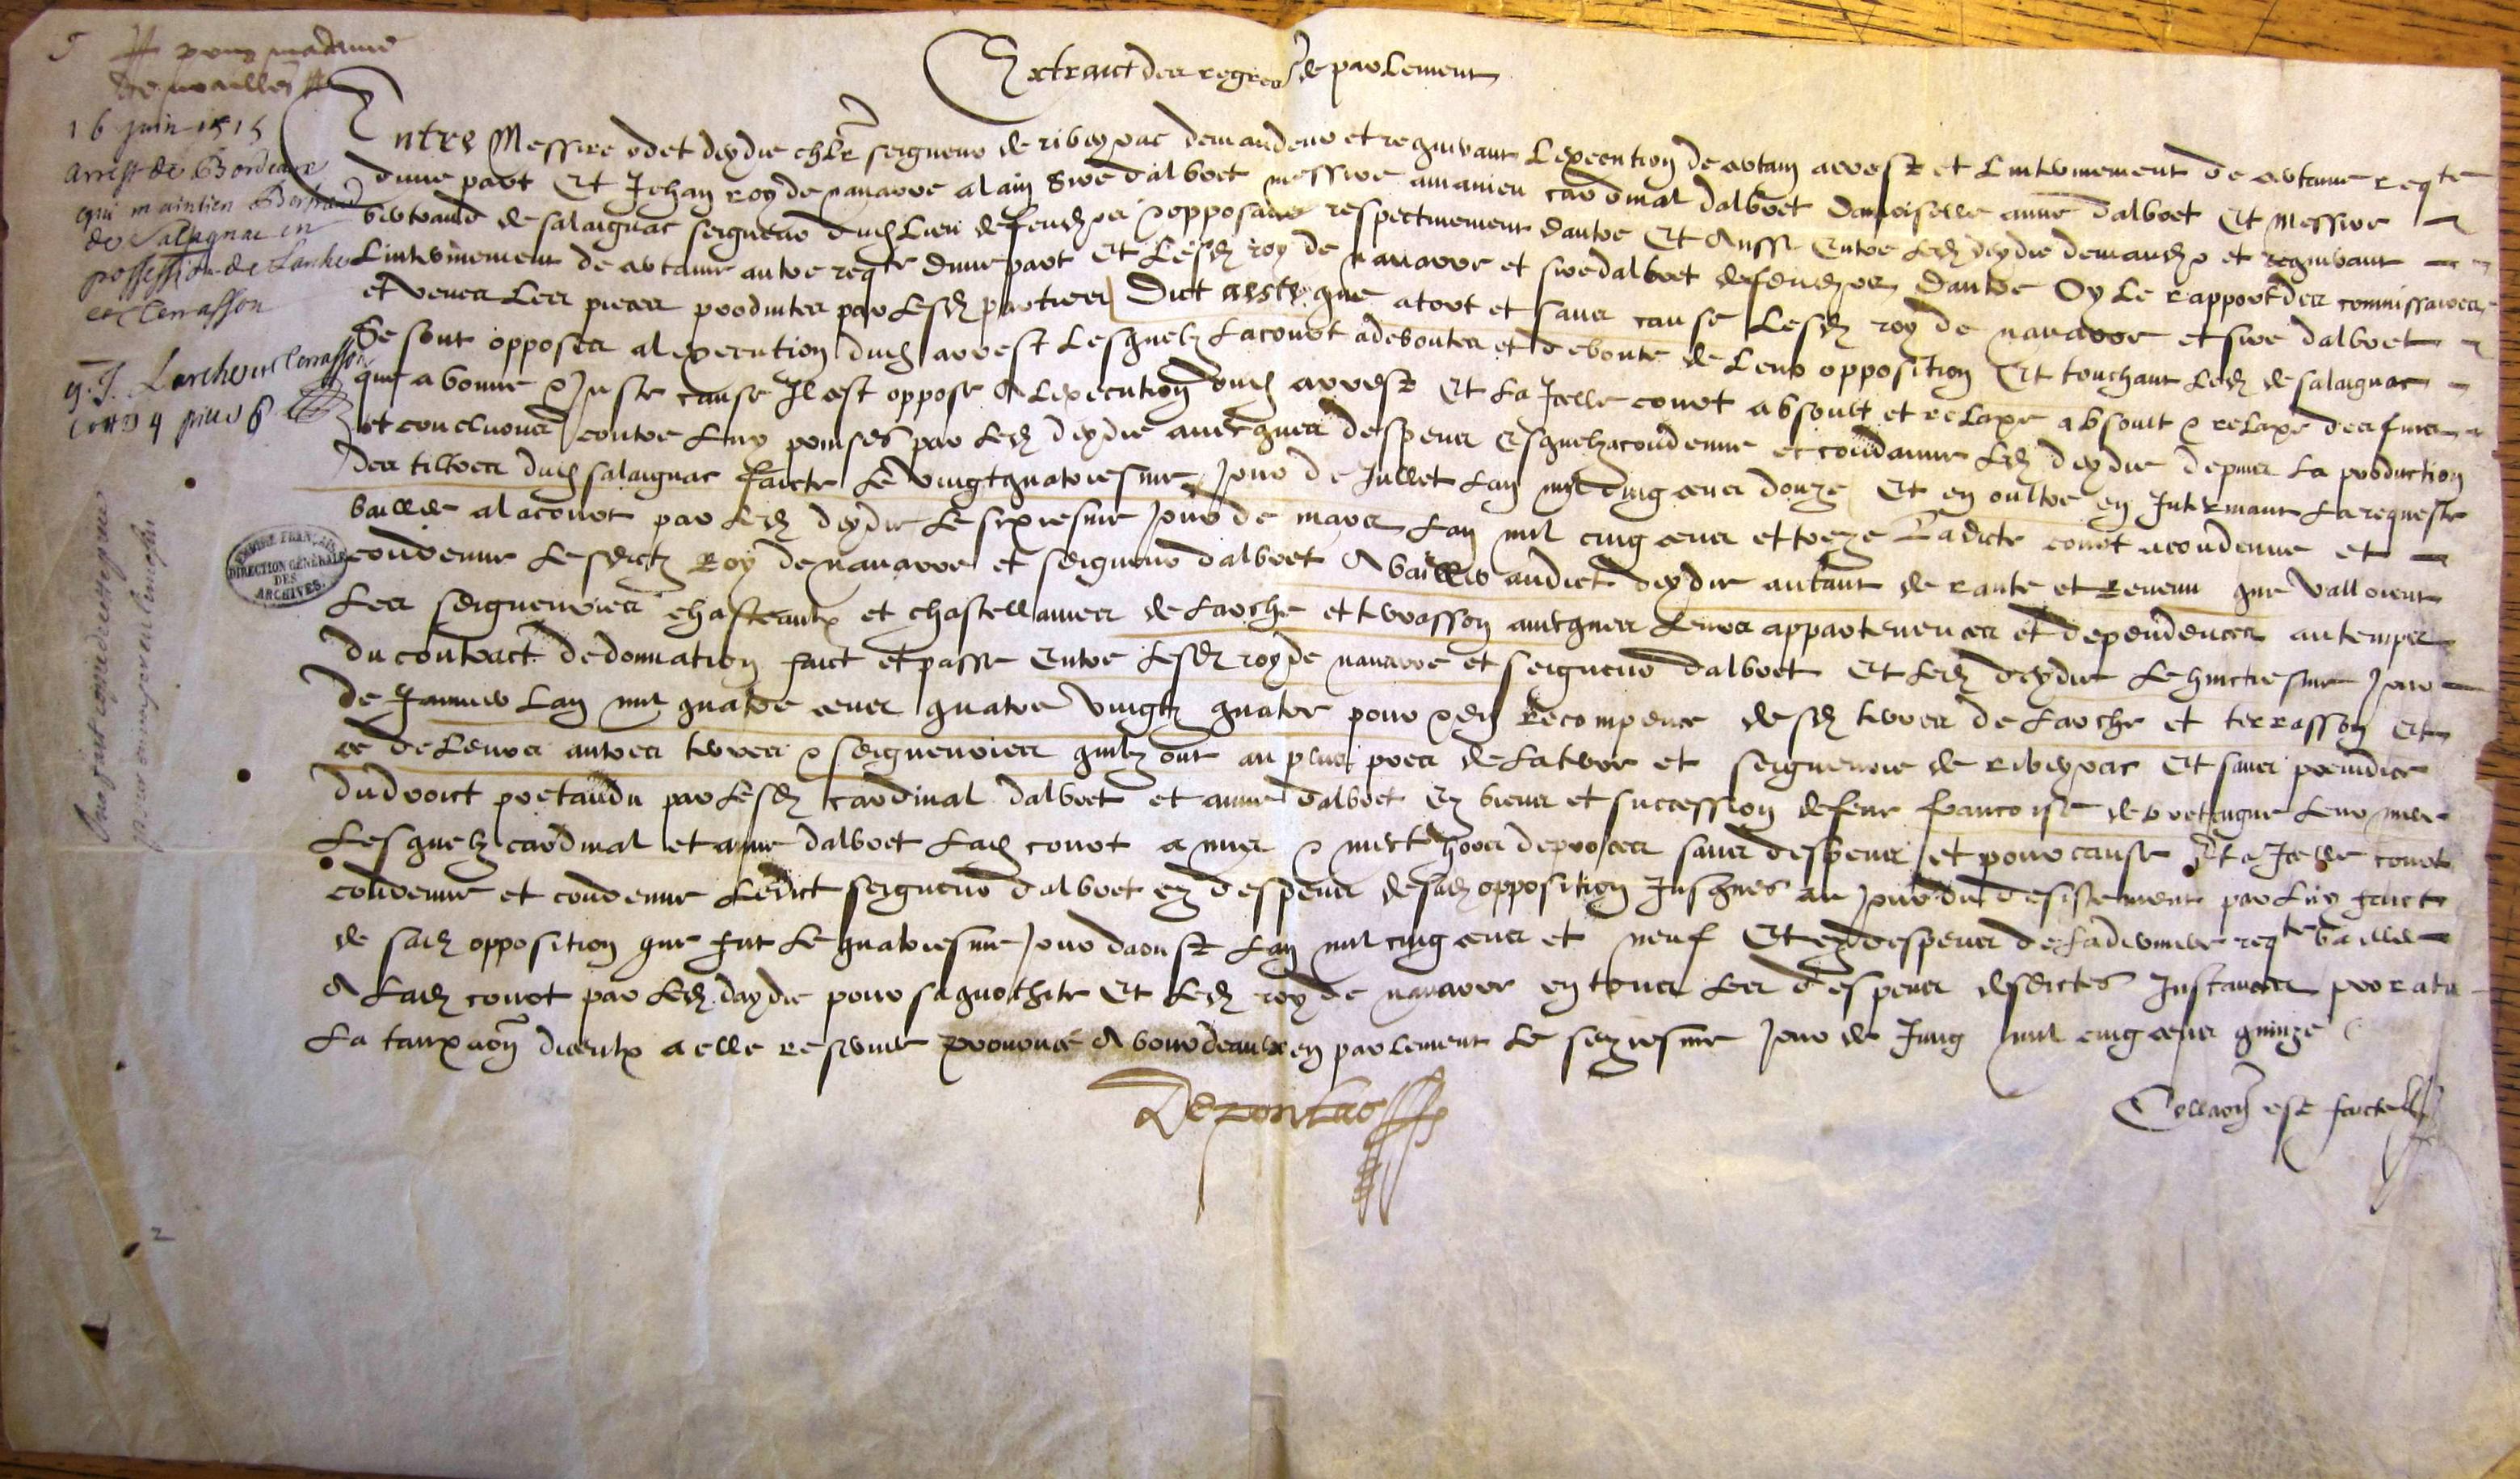 pour madame
de noailles
16 juin 1515
arrest de Bordeaux
qui maintien Bertrand
de Salagnac en
possession de Larche
et Terrasson
Larche et Terrasson
Extraict des regres de parlement
Entre Messire odet deydie chlr seigneur de ribeyrac demandeur et requerant lexecution de certain arrest et linterinement de certaine reqte
dune part Et Jehan roy de navarre alain sire dalbret messire amanieu cardinal dalbret damoiselle anne dalbret Et Messire
bertrand de salaignac seigneur dud lieu defendrs & opposans respectivement dautre Et Aussi Entre led deydie demandr et requerant
linterinement de certaine autre reqte dune part Et lesd roy de navarre et sire dalbret defendrs Dautre Oy le rapport des commissaires
et veues les pieces produites par lesd parties Dict a este que a tort et sans cause lesd roy de navarre et sire dalbret
se sont opposes a lexecution dud arrest lesquelz la court a deboutes et deboute de leur opposition Et touchant led de salaignac
que a bonne & Juste cause Il est oppose A lexecution dud arrest Et la Icelle court absoult et relaxe absoult & relaxe des fins
et conclusions contre luy prinses par led deydie avecques despens esquelz a condenne et condanne led deydie depuis la production
des tiltres dud salaignac faicte le vingtquatriesme Jour de Jullet lan mil cinq cens douze Et en oultre en Interinant la requeste
baillee a la court par led deydie le sixiesme jour de mars lan mil cinq cens et treze Ladicte court a condenne et
condenne lesdictz Roy de navarre et seigneur dalbret A bailler audict deydie autant de rante et Revenu que valloient
les seigneuries chasteaulx et chastellanies de larche et terrasson avecques leurs appartenences et dependences au temps
du contract de donnation faict et passe Entre lesd roy de navarre et seigneur dalbret Et led deydie le huictiesme Jour
de Janvier lan mil quatre cens quatre vingtz quatre pour & en Recompence desd terres de larche et terrasson Et
ce de leurs autres terres & seigneuries quilz ont au plus pres de la terre et seigneurie de ribeyrac Et sans prejudice
du droict pretandu par lesd cardinal dalbret et anne dalbret Ez biens et succession de feue francoise de bretaigne leur mere
Lesquelz cardinal et anne dalbret lad court a mys & mect hors de proces sans despens et pour cause Et a Icelle court
condenne et condenne ledict seigneur dalbret ez despens de sad opposition Jusques au jour du desistement par luy faict
de sad opposition que fut le quatriesme jour daoust lan mil cinq cens et neuf Et ez despens de la derniere reqte baillee
A lad court par led daydie pour sa quothite Et led roy de navarre en tous les despens desdictes Instances pro rata
La tauxacon diceulx a elle reservee prononce A bourdeaulx en parlement le seziesme jour de Juing mil cinq cens quinze
Depontac
Collacon est faicte
EMPIRE FRANÇAIS
DIRECTION GÉNÉRALE
DES
ARCHIVES
2